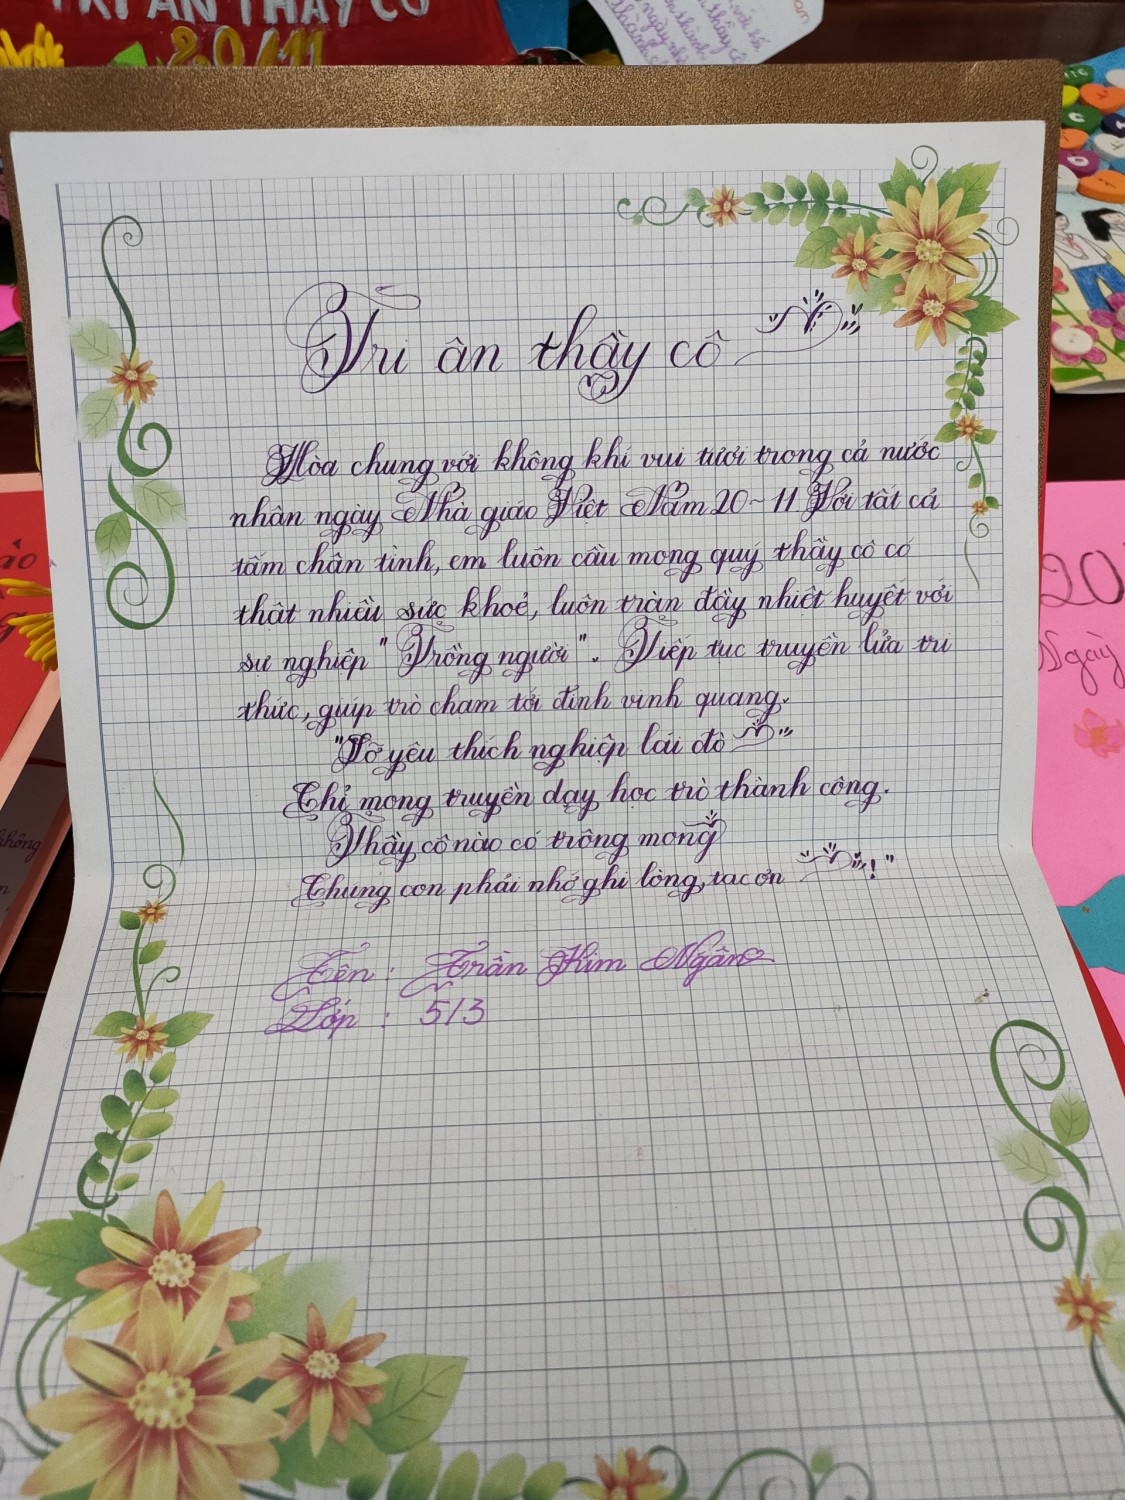 TRI ÂN THẦY CÔ
20/11
Tri ân thầy cô
Hòa chung với không khí vui tươi trong cả nước
nhân ngày Nhà giáo Việt Nam 20-11 Với tất cả
tấm chân tình, em luôn cầu mong quý thầy cô có
thật nhiều sức khoẻ, luôn tràn đầy nhiệt huyết với
sự nghiệp "Trồng người". Tiếp tục truyền lửa tri
thức, giúp trò chạm tới đỉnh vinh quang.
"Tớ yêu thích nghiệp lái đò
Chỉ mong truyền dạy học trò thành công.
Thầy cô nào có trông mong
Chúng con phải nhớ ghi lòng, tạc ơn !"
Tên : Trần Kim Ngân
Lớp : 5/3
20
Ngày
không